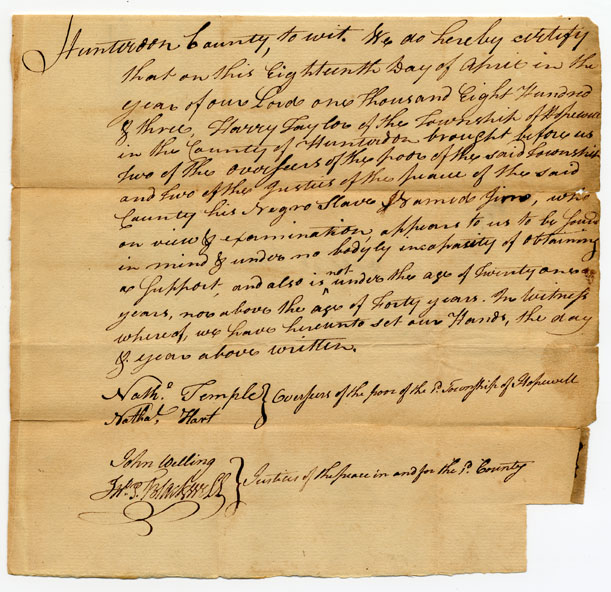 Hunterdon County, to wit. We do hereby certify
that on this Eighteenth Day of April in the
year of our Lord one thousand Eight Hundred
& three, Harry Taylor of the Township of Hopewell
in the County of Hunterdon brought before us
two of the overseers of the poor of the said Township
and two of the Justices of the peace of the said
County his Negro Slave Named Jim, who
on view & examination, appears to us to be sound
in mind & under no bodyly incapasity of obtaining
a support, and also is not under the age of twenty one
years, nor above the age of Forty years. In witness
whereof, we have hereunto set our Hands, the day
& year above written.
Nathl. Temple } Overseers of the poor of the sd. Township of Hopewell
Nathal. Hart
John Welling } Justices of the peace in and for the sd. County
Blackwell